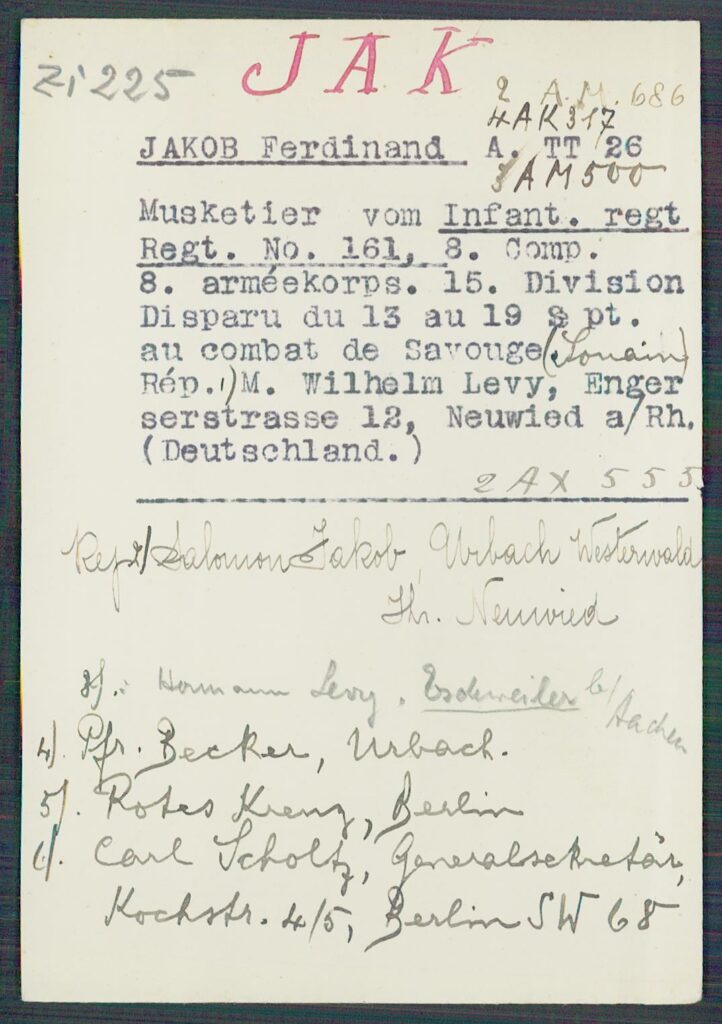 JAK
Zi 225
2 A.M. 686
4AK317
JAKOB Ferdinand A. TT 26
3 AM 500
Musketier vom Infant. regt
Regt. No. 161, 8. Comp.
8. arméekorps. 15. Division
Disparu du 13 au 19 S pt.
au combat de Savouge (Souain)
Rép. 1) M. Wilhelm Levy, Enger
serstrasse 12, Neuwied a/Rh.
(Deutschland.)
2 AX 555
Rep 2/ Salomon Jakob, Urbach Westerwald
Neuwied
3). Hermann Levy, Eschweiler b/
Aachen
4). Pfr. Becker, Urbach.
5). Rotes Kreuz, Berlin
6). Carl Scholtz, Generalsekretär,
Kochstr. 4/5, Berlin SW 68